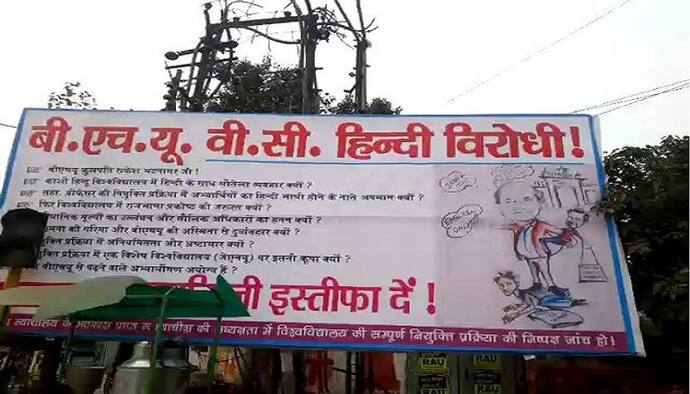 बी.एच.यू. वी.सी. हिन्दी विरोधी!
बीएचयू कुलपति राकेश भटनागर जी!
काशी हिन्दू विश्वविद्यालय में हिन्दी के साथ सौतेला व्यवहार क्यों ?
सहा. प्रोफेसर की नियुक्ति प्रक्रिया में अभ्यार्थियों का हिन्दी भाषी होने के नाते अपमान क्यों ?
फिर विश्वविद्यालय में राजभाषा प्रकोष्ठ की जरूरत क्यों ?
मूल्यों का उल्लंघन और मौलिक अधिकारों का हनन क्यों ?
की गरिमा और बीएचयू की अस्मिता से दुर्व्यवहार क्यों ?
प्रक्रिया में अनियमितता और भ्रष्टाचार क्यों ?
प्रक्रिया में एक विशेष विश्वविद्यालय (जेएनयू) पर इतनी कृपा क्यों ?
बीएचयू से पढ़ने वाले अभ्यार्थीगण अयोग्य हैं ?
इस्तीफा दें !
न्यायालय के अवकाश प्राप्त न्यायाधीश की अध्यक्षता में विश्वविद्यालय की सम्पूर्ण नियुक्ति प्रक्रिया की निष्पक्ष जांच हो!
RAU
RAU